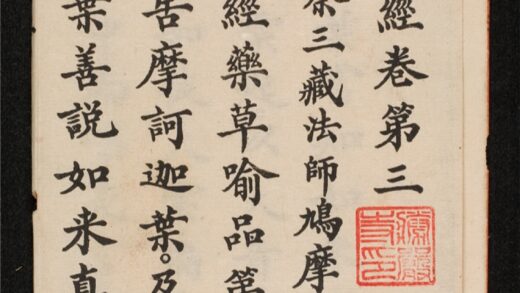 經卷第三
三藏法師鳩摩
經藥草喻品第
告摩訶迦葉。及
葉善說如来真